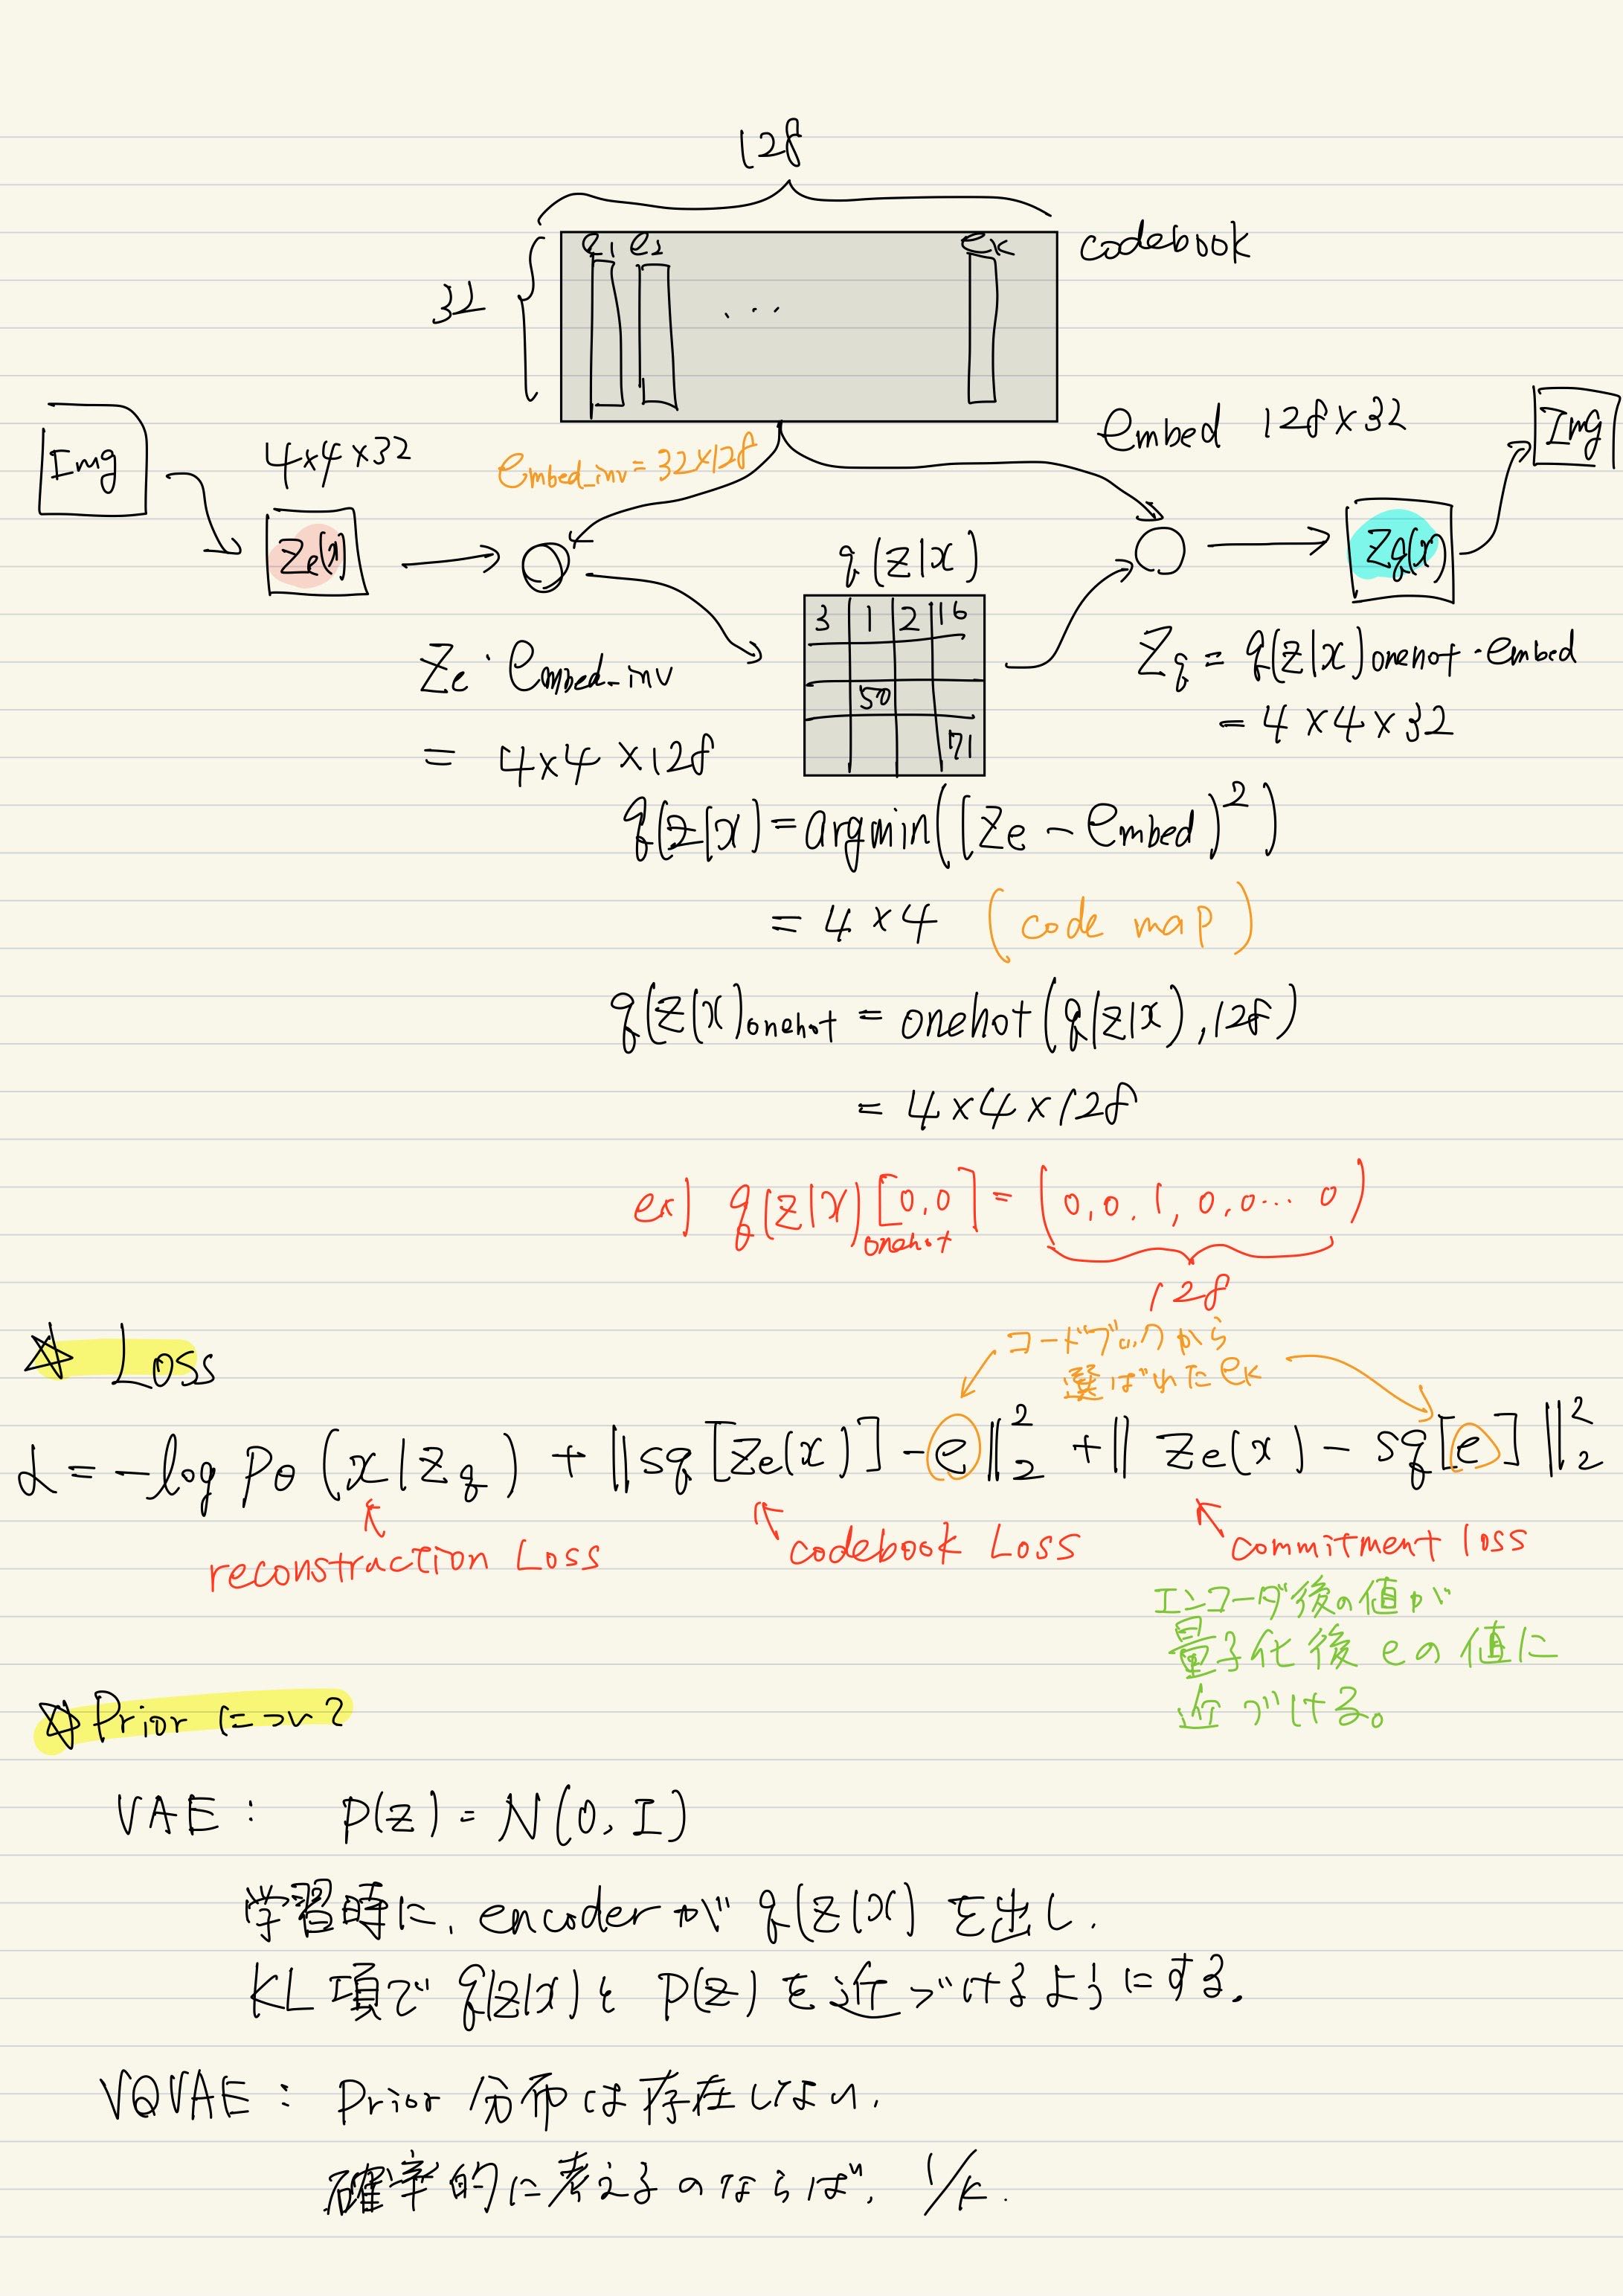 128
e1 e2 ... ek
codebook
32
Img
4×4×32
embed_inv = 32×128
embed 128×32
Img
Ze(x)
q(z|x)
Zq(x)
3 1 2 16
50
71
Ze · embed_inv
= 4×4×128
Zq = q(z|x)onehot · embed
= 4×4×32
q(z|x) = argmin((Ze - embed)²)
= 4×4 (code map)
q(z|x)onehot = onehot(q(z|x), 128)
= 4×4×128
ex) q(z|x)onehot[0,0] = (0, 0, 1, 0, 0 ... 0)
128
☆ Loss
コードブックから
選ばれた ek
L = -log pθ(x|zq) + ||sq[ze(x)] - e||₂² + ||ze(x) - sq[e]||₂²
reconstraction Loss
codebook Loss
commitment loss
エンコーダ後の値が
量子化後 e の値に
近づける。
☆ Prior について
VAE : p(z) = N(0, I)
学習時に、encoder が q(z|x) を出し、
KL項で q(z|x) と p(z) を近づけるようにする.
VQVAE : Prior 分布は存在しない.
確率的に考えるのならば、 1/k.